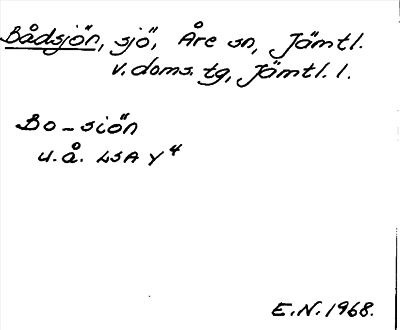 Bådsjön, sjö, Åre sn, Jämtl.
v. doms. tg, Jämtl. l.
Bo-siön
u.å. LSA Y4
E.N. 1968.